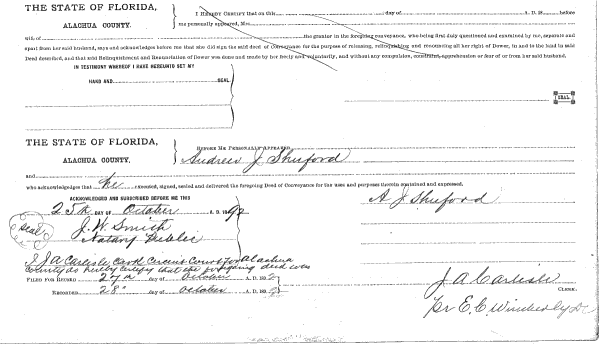 THE STATE OF FLORIDA,
ALACHUA COUNTY.
I HEREBY CERTIFY that on this day of A. D. 18 before
me personally appeared, Mrs.
wife of the grantor in the foregoing conveyance, who being first duly questioned and examined by me, separate and
apart from her said husband, says and acknowledges before me that she did sign the said deed of Conveyance for the purpose of releasing, relinquishing and renouncing all her right of Dower, in and to the land in said
Deed described, and that said Relinquishment and Renunciation of Dower was done and made by her freely and voluntarily, and without any compulsion, constraint, apprehension or fear of or from her said husband.
IN TESTIMONY WHEREOF I HAVE HEREUNTO SET MY
HAND AND SEAL
SEAL
THE STATE OF FLORIDA,
ALACHUA COUNTY.
BEFORE ME PERSONALLY APPEARED
Andrew J Shuford
and
who acknowledges that he executed, signed, sealed and delivered the foregoing Deed of Conveyance for the uses and purposes therein contained and expressed.
ACKNOWLEDGED AND SUBSCRIBED BEFORE ME THIS
A J Shuford
25th DAY OF October A. D. 18
Seal
J. W. Smith
Notary Public
I J A Carlisle Clerk Circuit Court for Alachua
County do hereby certify that the foregoing deed was
FILED FOR RECORD 27th day of October A. D. 189
RECORDED 28" day of October A. D. 189
J. A. Carlisle
CLERK.
Pr E. C. Wimberly D.C.